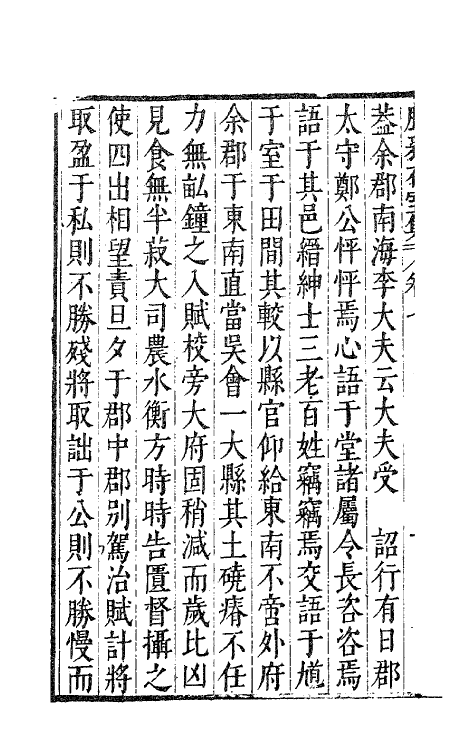 葢余郡南海李大夫云大夫受　詔行有日郡
太守鄭公怦怦焉心語于堂諸屬令長咨咨焉
語于其邑縉紳士三老百姓竊竊焉交語于尵
于室于田間其較以縣官仰給東南不啻外府
余郡于東南直當吳會一大縣其土磽瘠不任
力無畝鐘之入賦校旁大府固稍減而歲比凶
見食無半菽大司農水衡方時時告匱督攝之
使四出相望責旦夕于郡中郡别駕治賦計將
取盈于私則不勝殘將取詘于公則不勝慢而